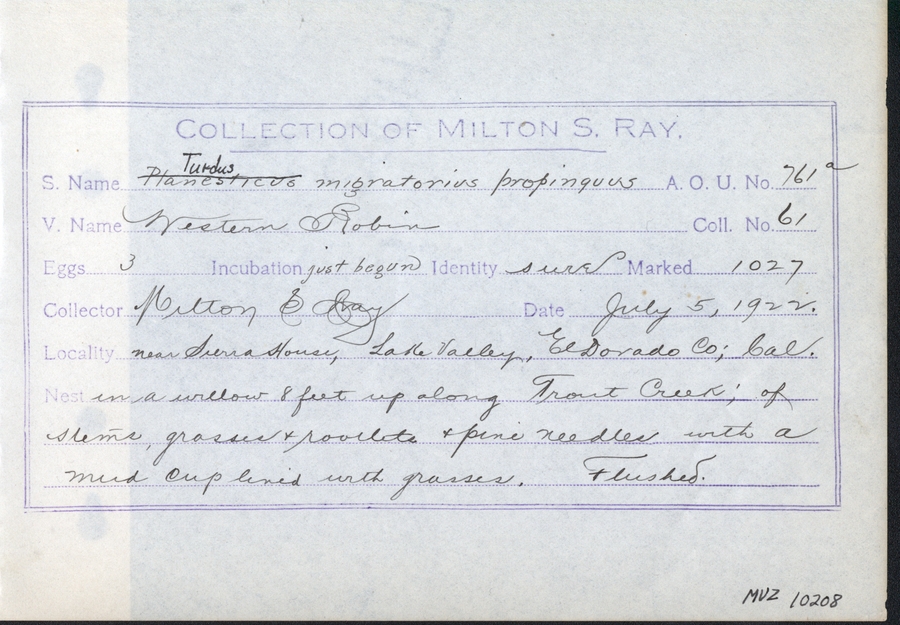 COLLECTION OF MILTON S. RAY.
Turdus
S. Name Planesticus migratorius propinquus A. O. U. No. 761a
V. Name Western Robin Coll. No. 61
Eggs 3 Incubation just begun Identity sure Marked 3/1027
Collector Milton S Ray Date July 5, 1922.
Locality near Sierra House, Lake Valley, El Dorado Co; Cal.
Nest in a willow 8 feet up along Trout Creek; of
stems, grasses & rootlets & pine needles with a
mud cup lined with grasses. Flushed.
MVZ 10208